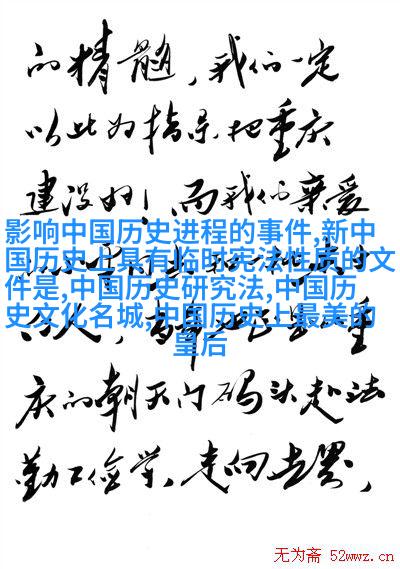 的精髓，我们一定
以此为指导把重庆
建设好！而我们亲爱
影响中国历史进程的事件,新中
国历史上具有临时宪法性质的文
件是,中国历史研究法,中国历
史文化名城,中国历史上最美的
皇后
庆的朝天门码头赴法
勤工俭学，走向世界，
无为斋 52wwz.cn